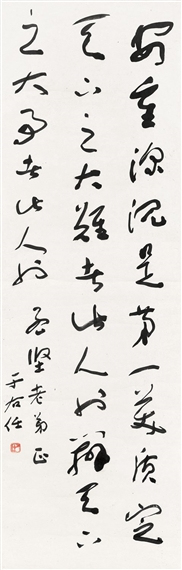 安重深沈是第一美質定
天下之大難者此人也辦天下
之大事者此人也
堅老弟正
于右任